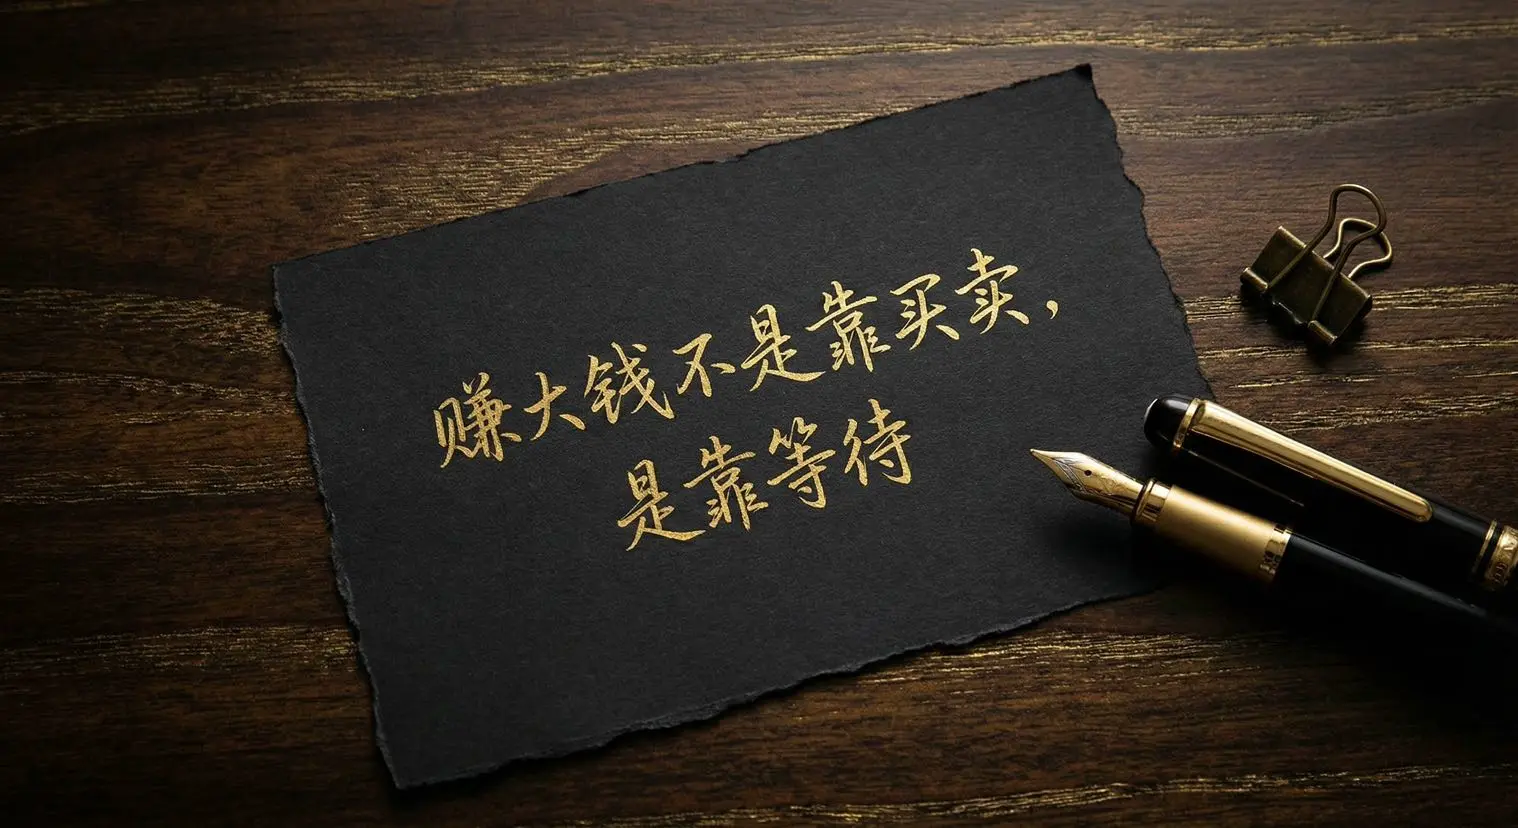 赚大钱不是靠买卖，
是靠等待